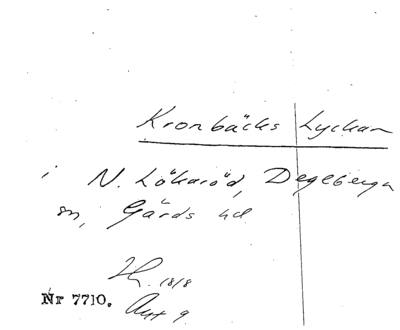 Kronbäcks Lyckan
i N. Lökaröd, Degeberga
sn, Gärds hd
18/8
Nr 7710.